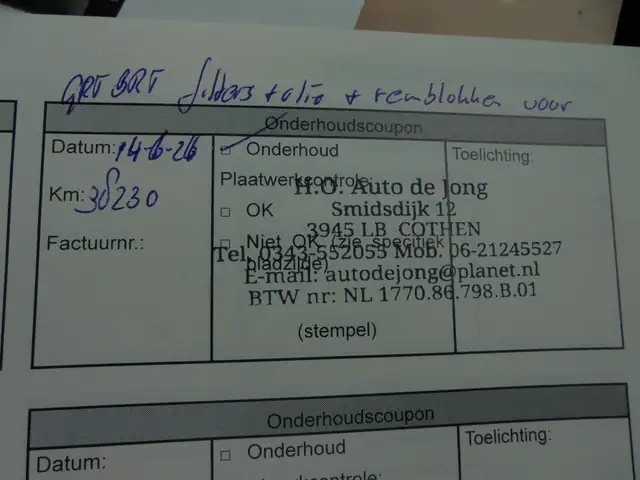 GRT BRT filders + olie + remblokken voor
Onderhoudscoupon
Datum: 14-6-26
Km: 38230
Factuurnr.:
□ Onderhoud
Plaatwerkcontrole:
□ OK
□ Niet OK (zie specifiek
bladzijde)
(stempel)
Toelichting:
H.O. Auto de Jong
Smidsdijk 12
3945 LB COTHEN
Tel. 0343-552055 Mob. 06-21245527
E-mail: autodejong@planet.nl
BTW nr: NL 1770.86.798.B.01
Onderhoudscoupon
Datum:
□ Onderhoud
Toelichting: